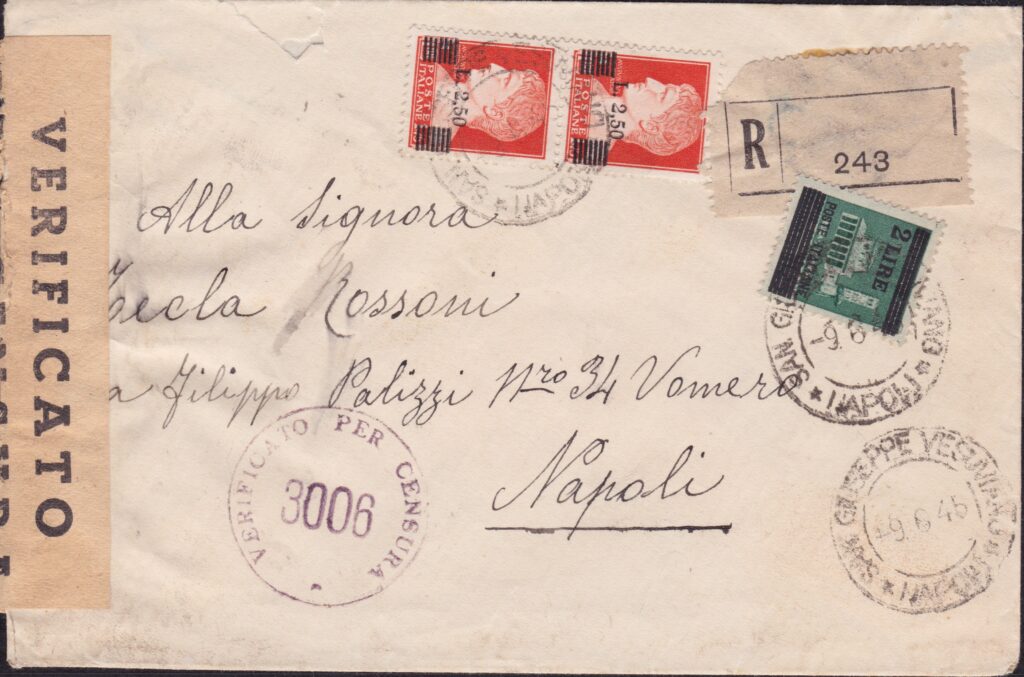 L. 2,50
POSTE ITALIANE
L. 2,50
POSTE ITALIANE
R
243
2 LIRE
POSTE ITALIANE
SAN GI
IANO
NAPOLI
-9.6
Alla Signora
Tecla Rossoni
a Filippo Palizzi Nro 34 Vomero
Napoli
VERIFICATO PER CENSURA
3006
SAN GIUSEPPE VESUVIANO
NAPOLI
-9.6.45
VERIFICATO